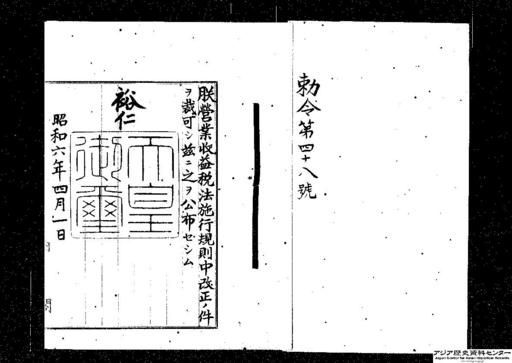 勅令第四十八號
朕營業收益税法施行規則中改正ノ件
ヲ裁可シ茲ニ之ヲ公布セシム
裕仁
天皇
御璽
昭和六年四月一日
アジア歴史資料センター
Japan Center for Asian Historical Records